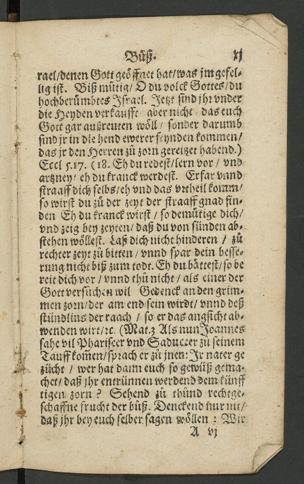 Büß. xj
rael/ denen Gott geöffnet hat/ was jm gefel-
lig ist. Biß mütig/ O du volck Gottes/ du
hochberümbtes Israel. Jetzt sind jhr vnder
die Heyden verkaufft aber nicht das euch
Gott gar außreuten wöll/ sonder darumb
sind jr in die hend ewerer feynden kommen/
das jr den Herren zů zorn gereitzet habend.)
Eccl 5.17. (18. Eh du redest/ lern vor/ vnd
artzney/ eh du kranck werdest. Erfar vnnd
straaff dich selbs/ eh vnd das vrtheil komm/
so wirst du zů der zeyt der straaff gnad fin-
den Eh du kranck wirst/ so demütige dich/
vnd zeig bey zeyten/ daß du von sünden ab-
stehen wöllest. Laß dich nicht hinderen/ zů
rechter zeyt zů bitten/ vnnd spar dein besse-
rung nicht biß zum todt. Eh du bättest/ so be
reit dich vor/ vnnd thů nicht/ als einer der
Gott versůchen wil Gedenck an den grim-
men zorn/ der am end sein wirdt/ vnnd deß
stündlins der raach/ so er das angsicht ab-
wenden wirt/ ꝛc. (Mat. 3 Als nun Joannes
sahe vil Phariseer vnd Saduceer zů seinem
Tauff kom̃en/ sprach er zů jnen: Jr nater ge
zücht/ wer hat dann euch so gewüß gema-
chet/ daß jhr entrünnen werdend dem künff
tigen zorn? Sehend zů thünd rechtge-
schaffne frucht der büß. Denckend nur nit/
daß jhr bey euch selber sagen wöllen: Wir
A vj